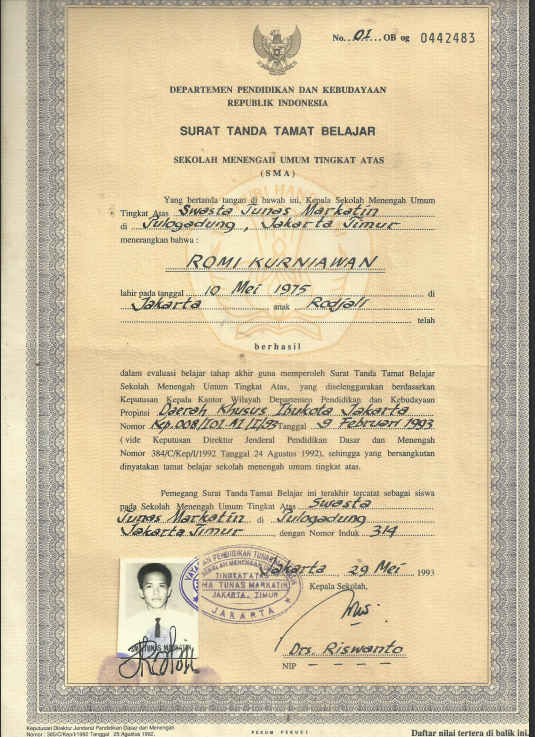 No. 01 OB og 0442483
DEPARTEMEN PENDIDIKAN DAN KEBUDAYAAN
REPUBLIK INDONESIA
SURAT TANDA TAMAT BELAJAR
SEKOLAH MENENGAH UMUM TINGKAT ATAS
(SMA)
Yang bertanda tangan di bawah ini, Kepala Sekolah Menengah Umum
Tingkat Atas Swasta Tunas Markatin
di Pulogadung, Jakarta Timur
menerangkan bahwa :
ROMI KURNIAWAN
lahir pada tanggal 10 Mei 1975 di
Jakarta anak Rodjali
telah
berhasil
dalam evaluasi belajar tahap akhir guna memperoleh Surat Tanda Tamat Belajar
Sekolah Menengah Umum Tingkat Atas, yang diselenggarakan berdasarkan
Keputusan Kepala Kantor Wilayah Departemen Pendidikan dan Kebudayaan
Propinsi Daerah Khusus Ibukota Jakarta
Nomor Kep.008/I01.A1/I/93 Tanggal 9 Februari 1993
( vide Keputusan Direktur Jenderal Pendidikan Dasar dan Menengah
Nomor 384/C/Kep/I/1992 Tanggal 24 Agustus 1992), sehingga yang bersangkutan
dinyatakan tamat belajar sekolah menengah umum tingkat atas.
Pemegang Surat Tanda Tamat Belajar ini terakhir tercatat sebagai siswa
pada Sekolah Menengah Umum Tingkat Atas Swasta
Tunas Markatin di Pulogadung
Jakarta Timur, dengan Nomor Induk 314
YAYASAN PENDIDIKAN TUNAS
SEKOLAH MENENGAH
TINGKAT ATAS
SMA TUNAS MARKATIN
JAKARTA TIMUR
JAKARTA
Jakarta 29 Mei 1993
Kepala Sekolah,
Drs Riswanto
NIP
Keputusan Direktur Jenderal Pendidikan Dasar dan Menengah
Nomor : 385/C/Kep/I/1992 Tanggal 25 Agustus 1992.
PERUM PERURI
Daftar nilai tertera di balik ini.